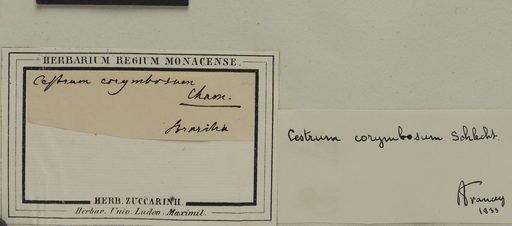 HERBARIUM REGIUM MONACENSE.
Cestrum corymbosum
Cham.
Brasilia
HERB. ZUCCARINII.
Herbar. Univ. Ludov. Maximil.
Cestrum corymbosum Schlecht.
Francey
1933